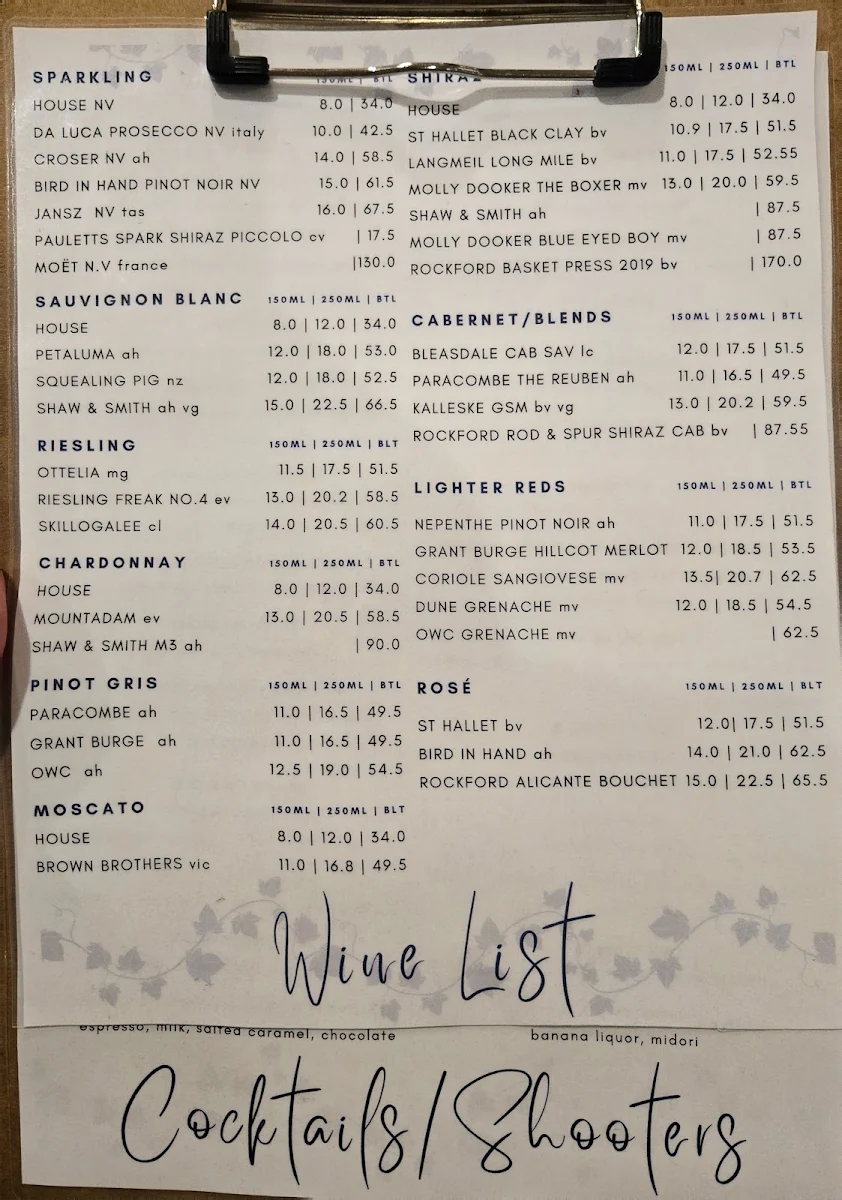 SPARKLING 150ML | BTL
HOUSE NV 8.0 | 34.0
DA LUCA PROSECCO NV italy 10.0 | 42.5
CROSER NV ah 14.0 | 58.5
BIRD IN HAND PINOT NOIR NV 15.0 | 61.5
JANSZ NV tas 16.0 | 67.5
PAULETTS SPARK SHIRAZ PICCOLO cv | 17.5
MOËT N.V france |130.0
SAUVIGNON BLANC 150ML | 250ML | BTL
HOUSE 8.0 | 12.0 | 34.0
PETALUMA ah 12.0 | 18.0 | 53.0
SQUEALING PIG nz 12.0 | 18.0 | 52.5
SHAW & SMITH ah vg 15.0 | 22.5 | 66.5
RIESLING 150ML | 250ML | BLT
OTTELIA mg 11.5 | 17.5 | 51.5
RIESLING FREAK NO.4 ev 13.0 | 20.2 | 58.5
SKILLOGALEE cl 14.0 | 20.5 | 60.5
CHARDONNAY 150ML | 250ML | BTL
HOUSE 8.0 | 12.0 | 34.0
MOUNTADAM ev 13.0 | 20.5 | 58.5
SHAW & SMITH M3 ah | 90.0
PINOT GRIS 150ML | 250ML | BTL
PARACOMBE ah 11.0 | 16.5 | 49.5
GRANT BURGE ah 11.0 | 16.5 | 49.5
OWC ah 12.5 | 19.0 | 54.5
MOSCATO 150ML | 250ML | BLT
HOUSE 8.0 | 12.0 | 34.0
BROWN BROTHERS vic 11.0 | 16.8 | 49.5
SHIRAZ 150ML | 250ML | BTL
HOUSE 8.0 | 12.0 | 34.0
ST HALLET BLACK CLAY bv 10.9 | 17.5 | 51.5
LANGMEIL LONG MILE bv 11.0 | 17.5 | 52.55
MOLLY DOOKER THE BOXER mv 13.0 | 20.0 | 59.5
SHAW & SMITH ah | 87.5
MOLLY DOOKER BLUE EYED BOY mv | 87.5
ROCKFORD BASKET PRESS 2019 bv | 170.0
CABERNET/BLENDS 150ML | 250ML | BTL
BLEASDALE CAB SAV lc 12.0 | 17.5 | 51.5
PARACOMBE THE REUBEN ah 11.0 | 16.5 | 49.5
KALLESKE GSM bv vg 13.0 | 20.2 | 59.5
ROCKFORD ROD & SPUR SHIRAZ CAB bv | 87.55
LIGHTER REDS 150ML | 250ML | BTL
NEPENTHE PINOT NOIR ah 11.0 | 17.5 | 51.5
GRANT BURGE HILLCOT MERLOT 12.0 | 18.5 | 53.5
CORIOLE SANGIOVESE mv 13.5| 20.7 | 62.5
DUNE GRENACHE mv 12.0 | 18.5 | 54.5
OWC GRENACHE mv | 62.5
ROSÉ 150ML | 250ML | BLT
ST HALLET bv 12.0| 17.5 | 51.5
BIRD IN HAND ah 14.0 | 21.0 | 62.5
ROCKFORD ALICANTE BOUCHET 15.0 | 22.5 | 65.5
Wine List
espresso, milk, salted caramel, chocolate
banana liquor, midori
Cocktails/Shooters